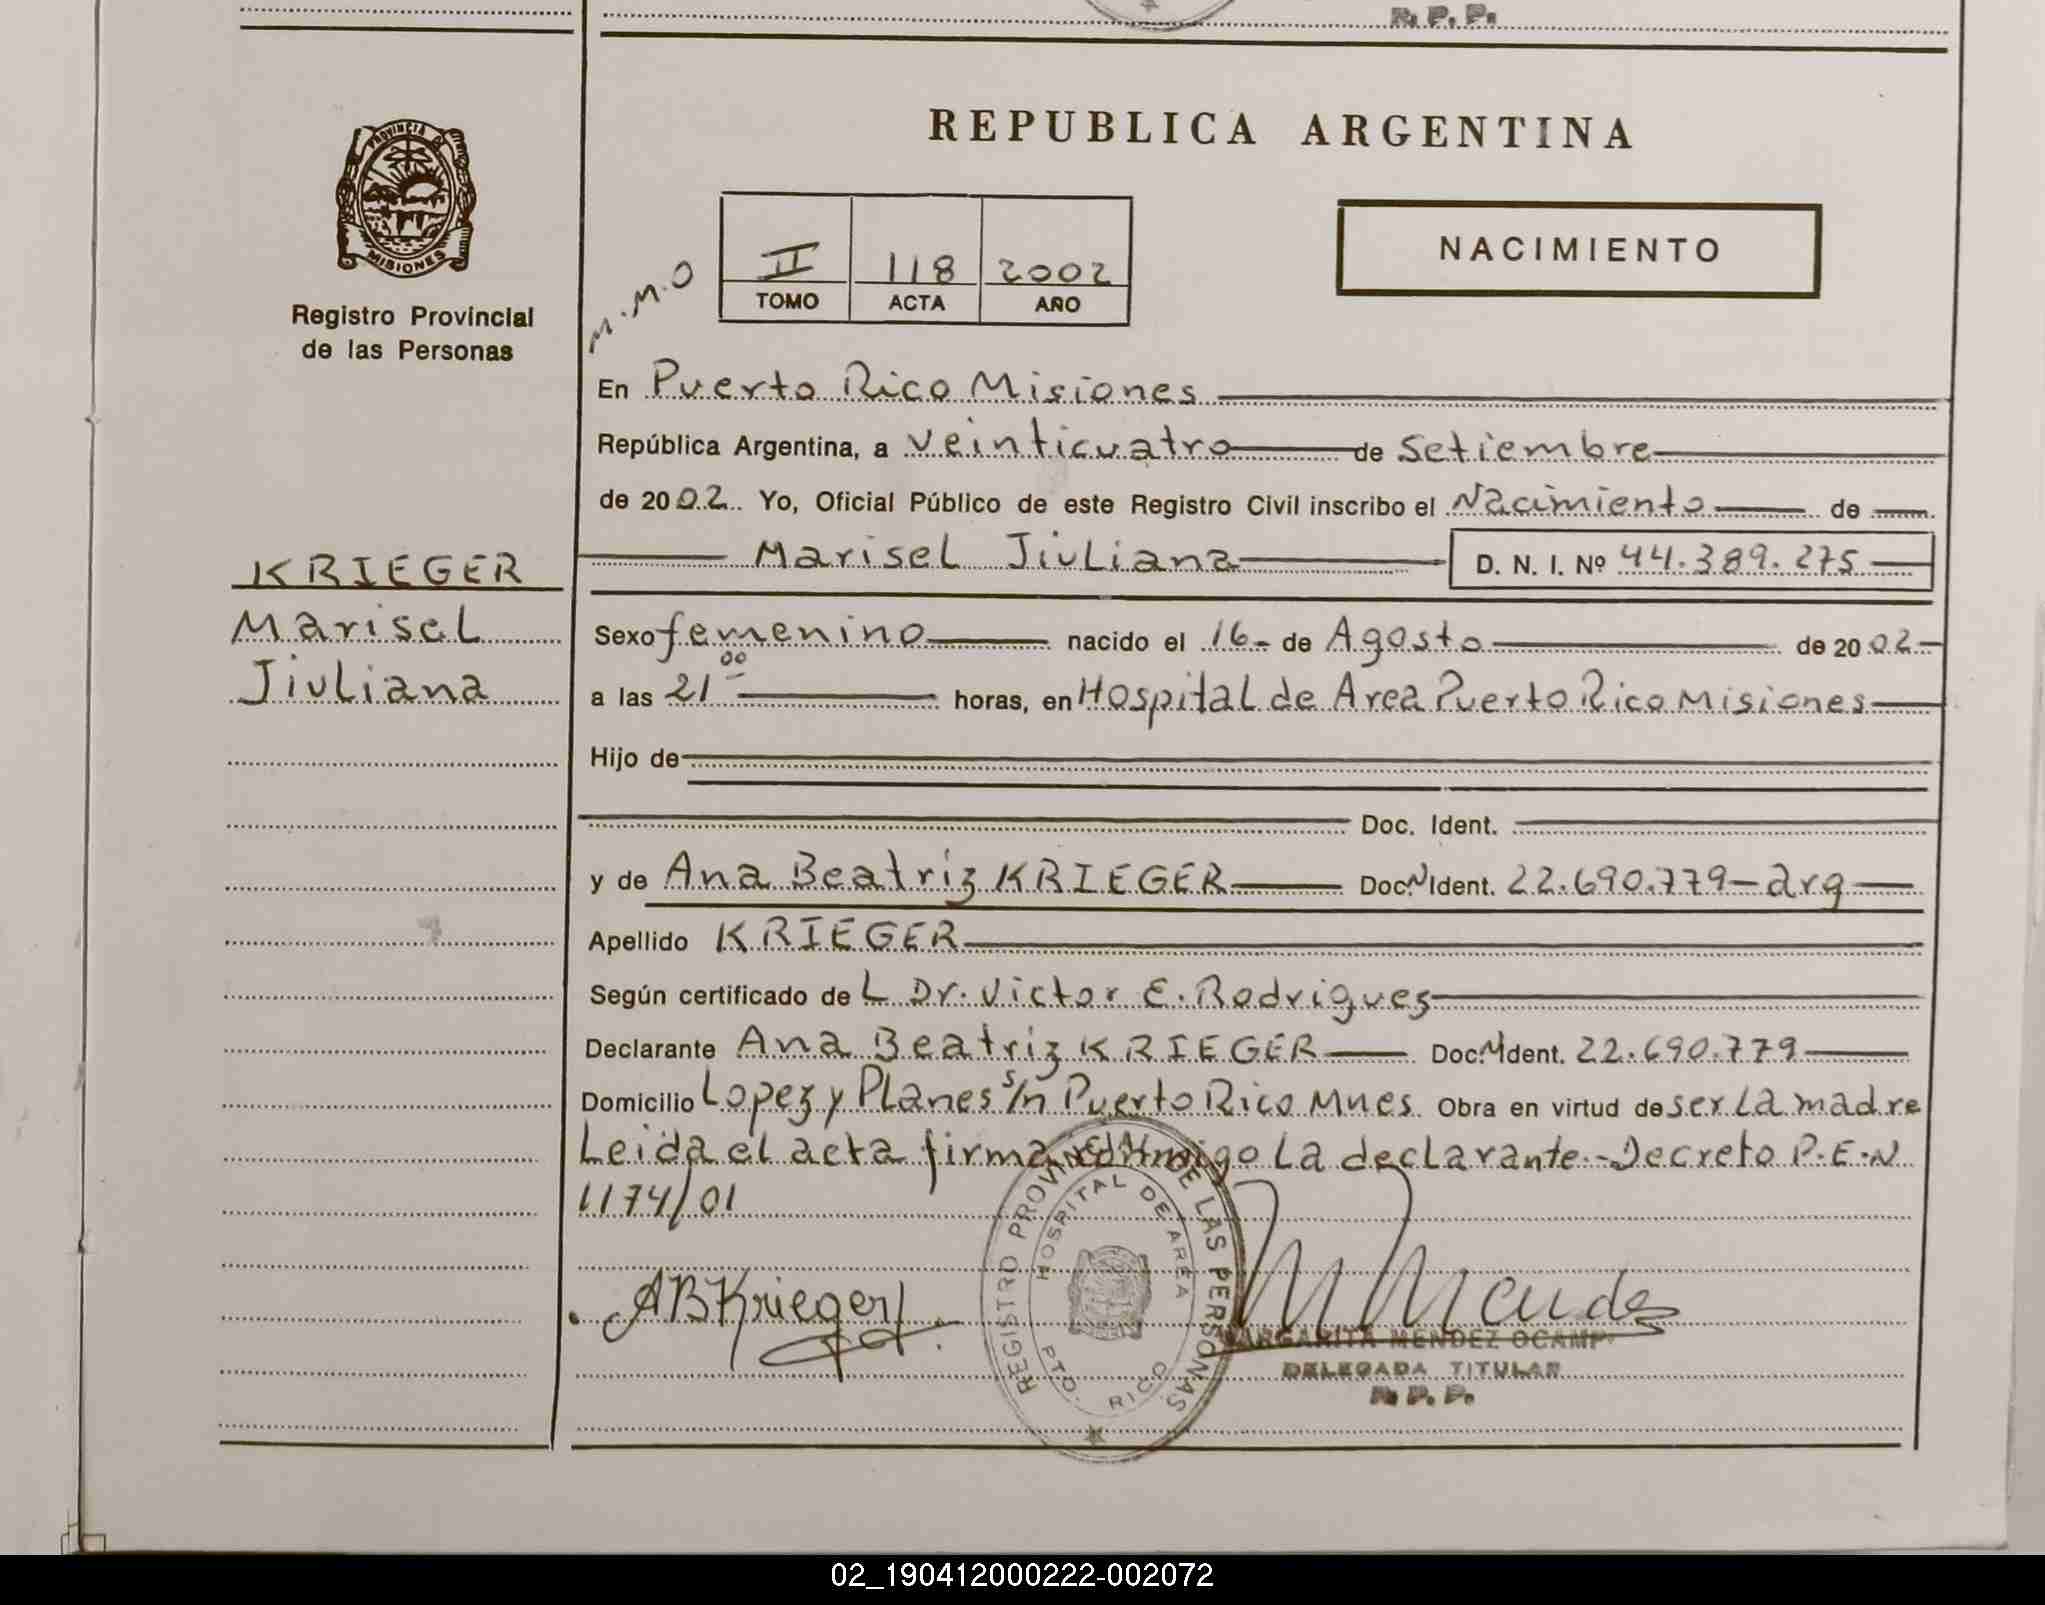 R. P. P.
PROVINCIA DE
MISIONES
Registro Provincial
de las Personas
REPUBLICA ARGENTINA
II 118 2002
TOMO ACTA AÑO
NACIMIENTO
M.M.O
En Puerto Rico Misiones
República Argentina, a veinticuatro de Setiembre
de 2002. Yo, Oficial Público de este Registro Civil inscribo el Nacimiento de
Marisel Jiuliana D. N. I. Nº 44.389.275
KRIEGER
Marisel
Jiuliana
Sexo femenino nacido el 16- de Agosto de 2002-
a las 21 00 horas, en Hospital de Area Puerto Rico Misiones
Hijo de
Doc. Ident.
y de Ana Beatriz KRIEGER Doc. N Ident. 22.690.779-arg
Apellido KRIEGER
Según certificado de L Dr. Victor E. Rodrigues
Declarante Ana Beatriz KRIEGER Doc. N Ident. 22.690.779
Domicilio Lopez y Planes s/n Puerto Rico Mnes Obra en virtud de ser La madre
Leida el acta firma conmigo La declarante.-Decreto P.E.N
1174/01
REGISTRO PROVINCIAL DE LAS PERSONAS
HOSPITAL DE AREA
PTO. RICO
ABKrieger
MMendez
MARGARITA MENDEZ OCAMPO
DELEGADA TITULAR
R. P. P.
02_190412000222-002072